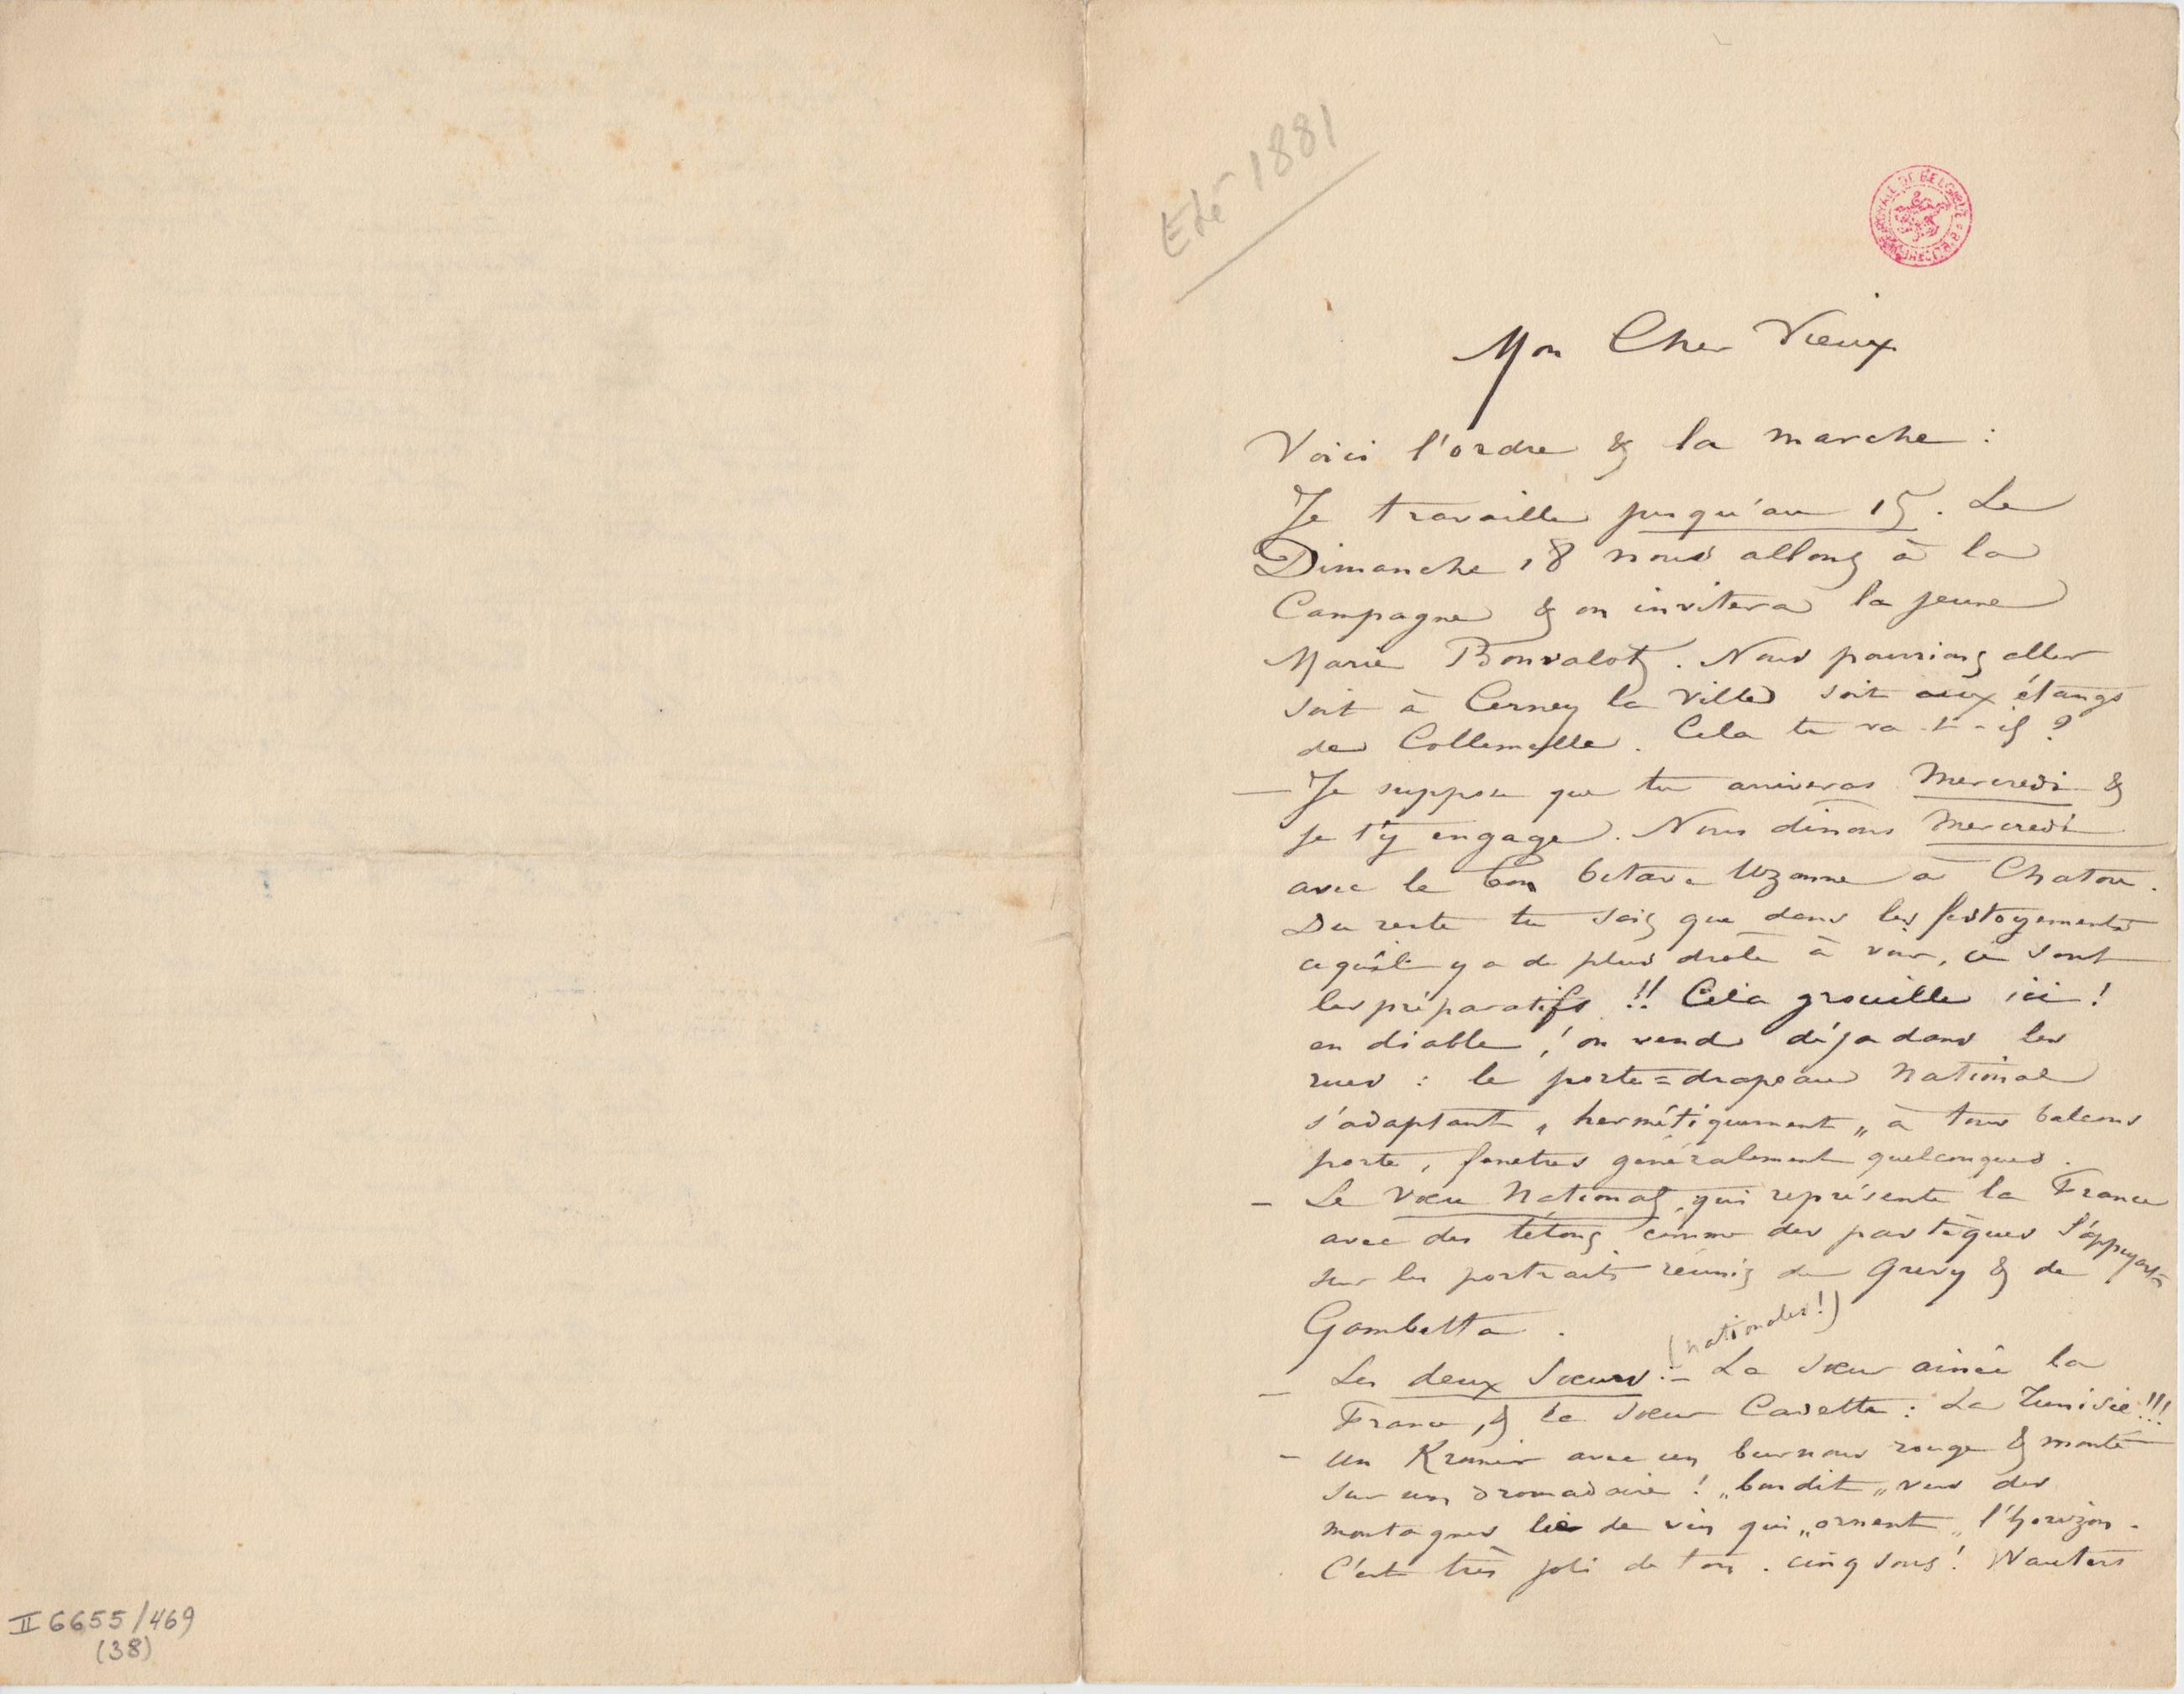 II 6655/469
(38)
Eté 1881
Mon Cher Vieux
Voici l'ordre & la marche :
Je travaille jusqu'au 15. Le
Dimanche 18 nous allons à la
Campagne & on invitera la jeune
Marie Bonvalot. Nous pourrions aller
soit à Cerney la Ville soit aux étangs
de . Cela te va-t-il ?
— Je suppose que tu arriveras Mercredi &
je t'y engage. Nous dinons Mercredi
avec le bon Octave Uzanne à Chatou.
Du reste tu sais que dans les festoyements
ce qu'il y a de plus drole à voir, ce sont
les préparatifs !! Cela grouille ici !
en diable ! on vend déja dans les
rues : le porte=drapeau National
s'adaptant „ hermétiquement „ à tous balcons
porte, fenetres généralement quelconques.
— Le Vœu National, qui représente la France
avec des tétons comme des pastèques s'appuyant
sur les portraits réunis de Grevy & de
Gambetta.
(nationales!)
— Les deux Sœurs :— La Sœur ainée la
France, & la Sœur Cadette : La Tunisie !!!
— Un Kroumir avec un burnous rouge & monté
sur un dromadaire ! „bondit„ vers des
montagnes lie de vin qui „ornent„ l'horizon.
C'est très joli de ton. cinq sous ! Wauters